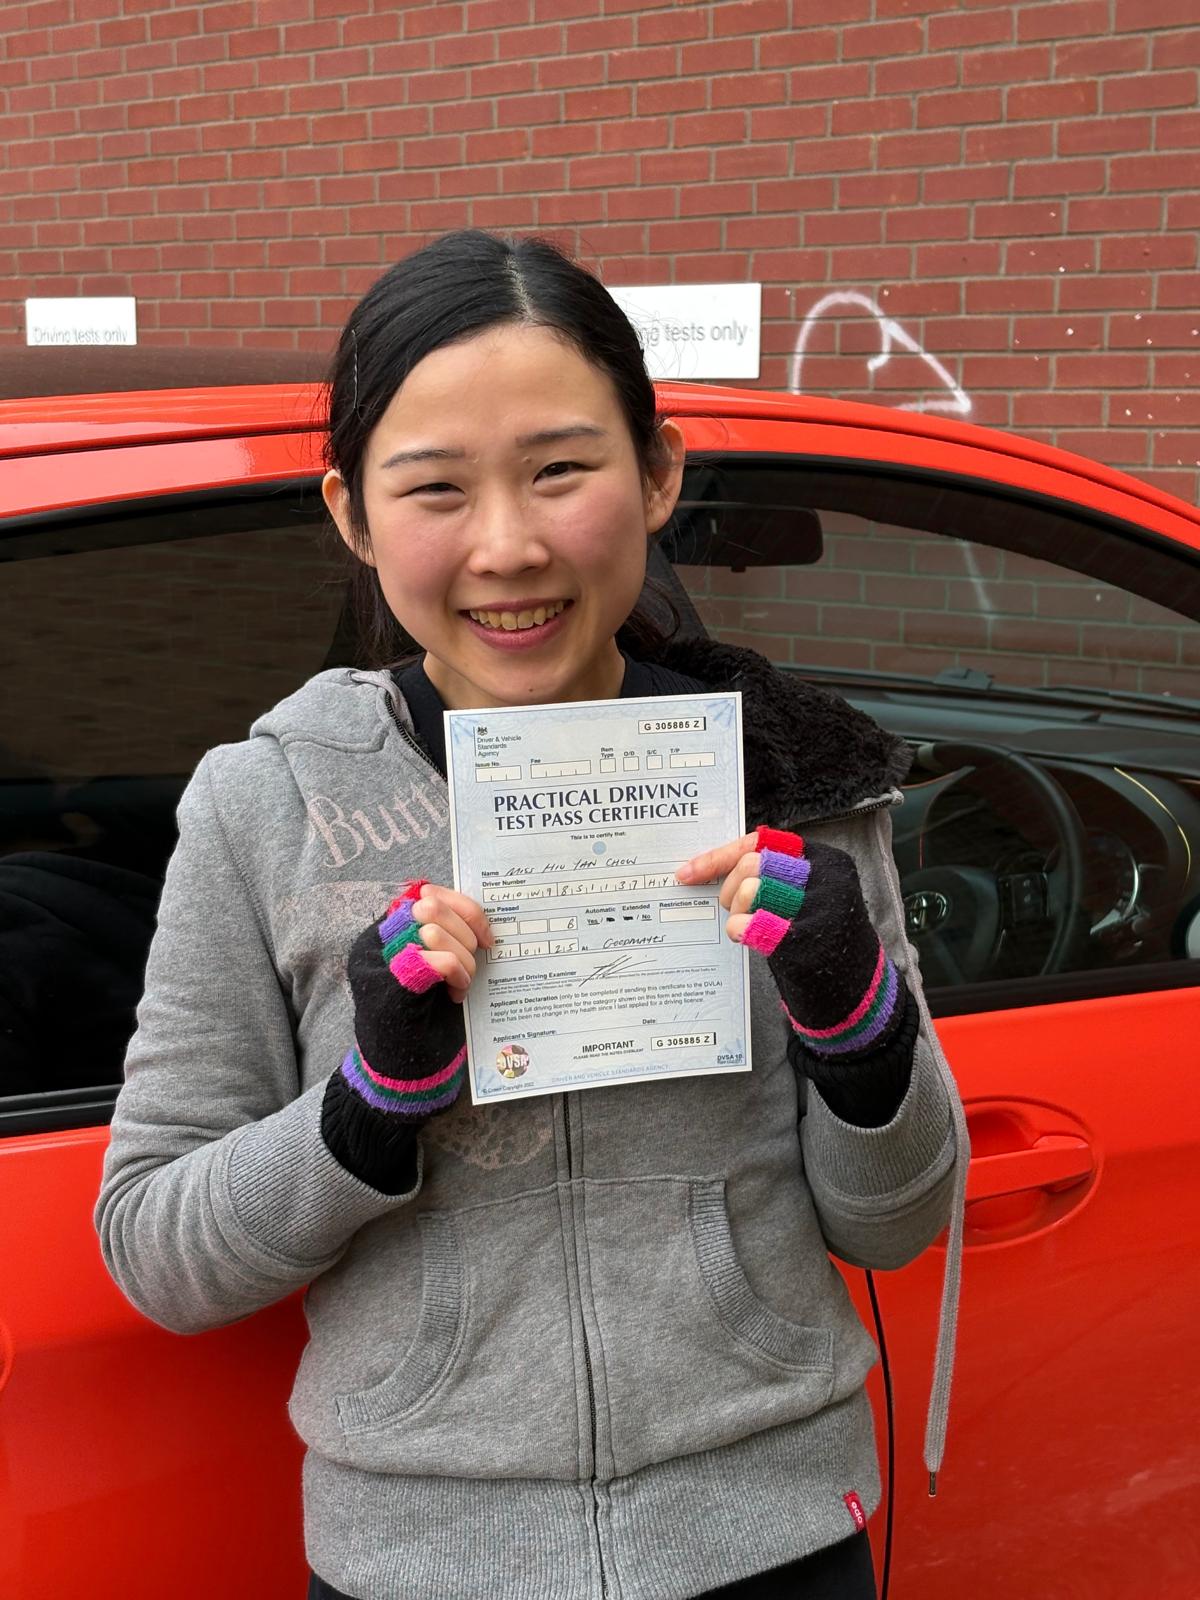 Driving tests only
ng tests only
Butt
G 305885 Z
Driver & Vehicle
Standards
Agency
Issue No. Fee Rem Type D/D S/C T/P
PRACTICAL DRIVING
TEST PASS CERTIFICATE
This is to certify that:
Name MISS HIU YAN CHOW
Driver Number CHOW9851137HY
Has Passed
Category B Automatic Yes / Extended / No Restriction Code
21 01 25 At GOODMAYES
Signature of Driving Examiner
Applicant's Declaration (only to be completed if sending this certificate to the DVLA)
I apply for a full driving licence for the category shown on this form and declare that
there has been no change in my health since I last applied for a driving licence.
Applicant's Signature: Date: / /
IMPORTANT G 305885 Z
PLEASE READ THE NOTES OVERLEAF
DVSA
DVSA 10
© Crown Copyright 2022 DRIVER AND VEHICLE STANDARDS AGENCY
edc